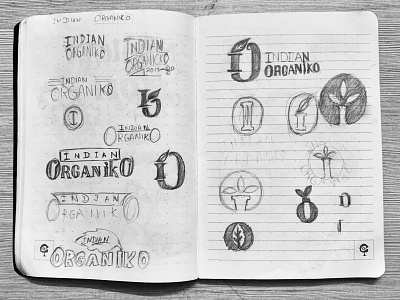 INDIAN ORGANIKO
INDIAN
ORGANIKO
INDIAN
ORGANICKO
INDIAN
ORGANIKO
I
INDIAN
ORGANIKO
INDIAN
ORGANIKO
INDIAN
ORGANIK
INDIAN
ORGANIKO
INDIAN
ORGANIKO
I
I